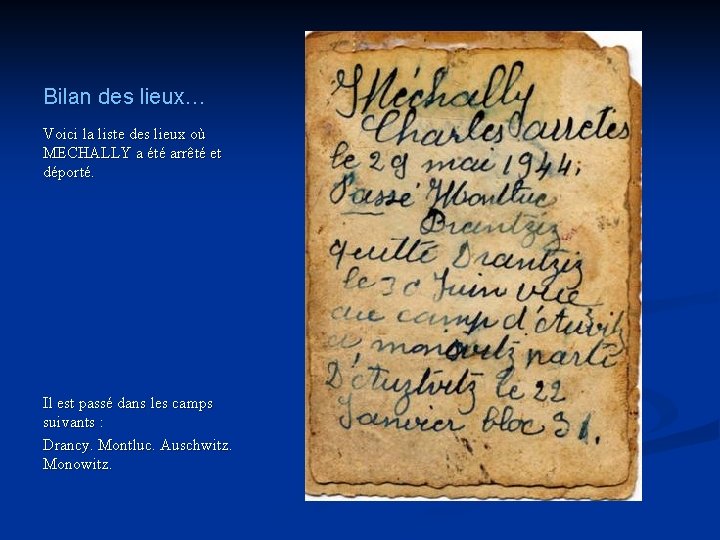 Bilan des lieux…
Voici la liste des lieux où
MECHALLY a été arrêté et
déporté.
Il est passé dans les camps
suivants :
Drancy. Montluc. Auschwitz.
Monowitz.
Méchally
Charles arretes
le 29 mai 1944.
Passé Montluc
Drantziz
quitté Drantziz
le 30 Juin
au camp
a monovitz parti
le 22
Janvier bloc 31.